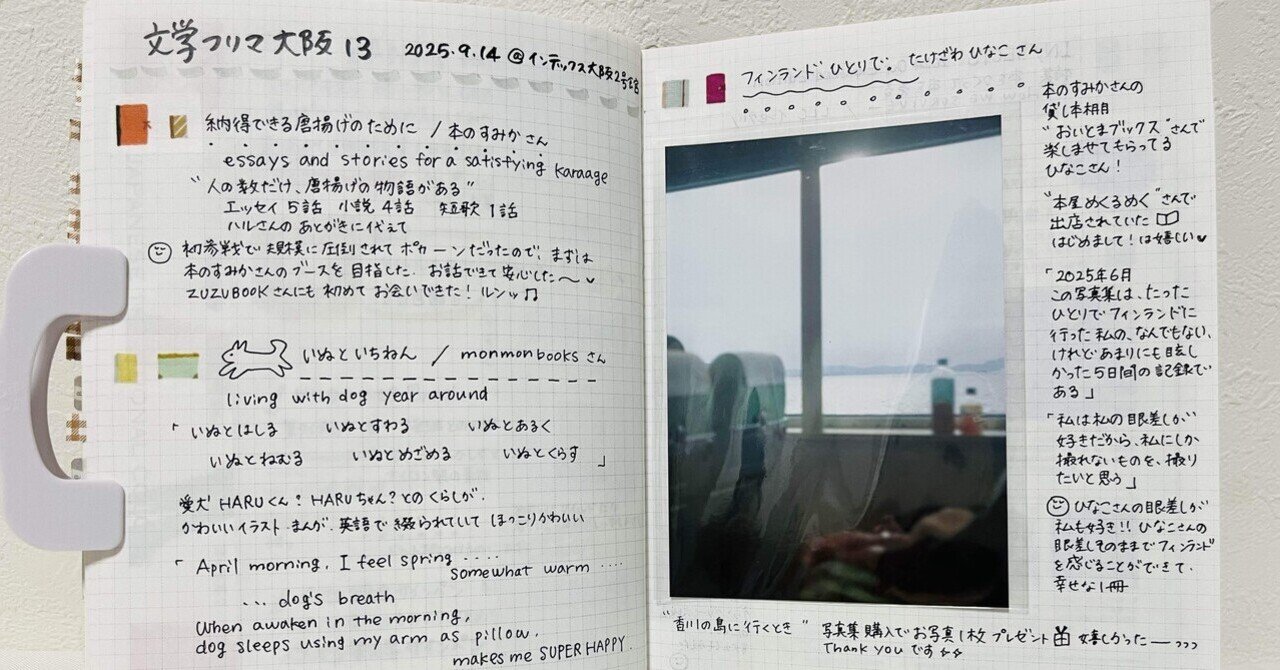 文学フリマ大阪13 2025.9.14 @インデックス大阪2号館
納得できる唐揚げのために / 本のすみかさん
essays and stories for a satisfying karaage
"人の数だけ、唐揚げの物語がある"
エッセイ5話 小説4話 短歌1話
ハルさんのあとがきに代えて
初参戦で規模に圧倒されてポカーンだったので、まずは
本のすみかさんのブースを目指した。お話できて安心した〜♥
ZUZUBOOKさんにも初めてお会いできた!ルンッ♫
いぬといちねん / monmonbooksさん
living with dog year around
「いぬとはしる いぬとすわる いぬとあるく
いぬとねむる いぬとめざめる いぬとくらす」
愛犬HARUくん?HARUちゃん?とのくらしが、
かわいいイラスト、まんが、英語で綴られていてほっこりかわいい
「April morning, I feel spring ....
somewhat warm ....
... dog's breath
When awaken in the morning,
dog sleeps using my arm as pillow.
makes me SUPER HAPPY.
フィンランド、ひとりで。 たけざわひなこさん
本のすみかさんの
貸し本棚
"おいとまブックス"さんで
楽しませてもらってる
ひなこさん!
"本屋めくるめく"さんで
出店されていた
はじめまして!は嬉しい♥
「2025年6月
この写真集は、たった
ひとりでフィンランドに
行った私の、なんでもない、
けれどあまりにも眩し
かった5日間の記録で
ある」
「私は私の眼差しが
好きだから、私にしか
撮れないものを、撮り
たいと思う」
ひなこさんの眼差しが
私も好き!!ひなこさんの
眼差しそのままでフィンランド
を感じることができて、
幸せな1冊
"香川の島に行くとき" 写真集購入でお写真1枚プレゼント 嬉しかったーっっっ
Thank youです